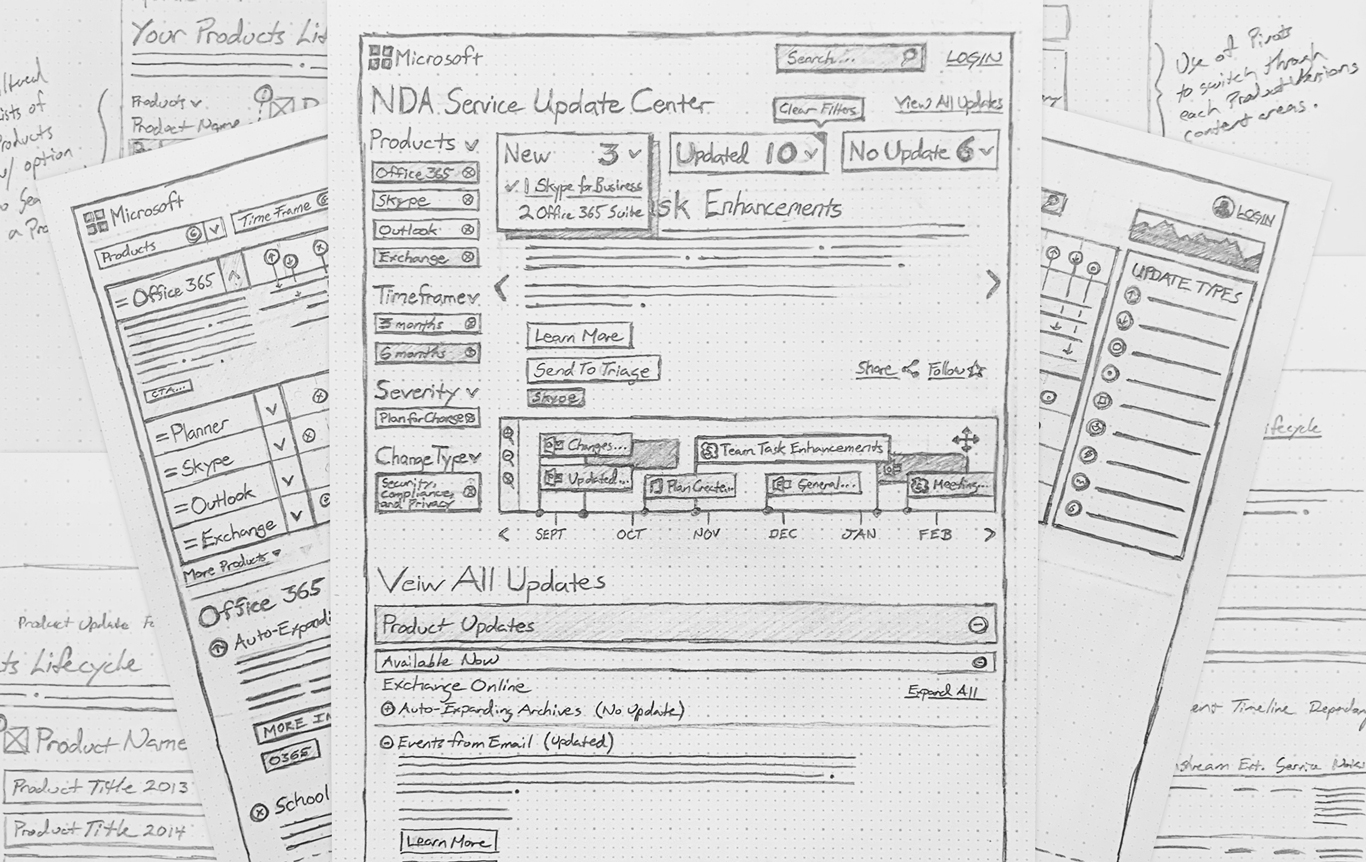 Your Products Lis
Products
Product Name
ists of
Products
w/ option
Use of Pivots
to switch through
each Product Versions
content areas.
Microsoft
Products
Time Frame
Office 365
CTA...
Planner
Skype
Outlook
Exchange
More Products
Office 365
Auto-Expandi
MORE IN
O365
School
Microsoft
Search...
LOGIN
NDA Service Update Center
Clear Filters
View All Updates
Products
Office 365
Skype
Outlook
Exchange
Timeframe
3 months
6 months
Severity
Plan for Change
Change Type
Security,
compliance,
and Privacy
New 3
1 Skype for Business
2 Office 365 Suite
Updated 10
No Update 6
sk Enhancements
Learn More
Send To Triage
Skype
Share
Follow
Changes...
Updated...
Team Task Enhancements
Plan Create...
General...
Meeting...
SEPT OCT NOV DEC JAN FEB
Veiw All Updates
Product Updates
Available Now
Exchange Online
Expand All
Auto-Expanding Archives (No Update)
Events from Email (Updated)
Learn More
LOGIN
UPDATE TYPES
ifecycle
Product Update Fe
ts Lifecycle
Product Name
Product Title 2013
Product Title 2014
ent Timeline